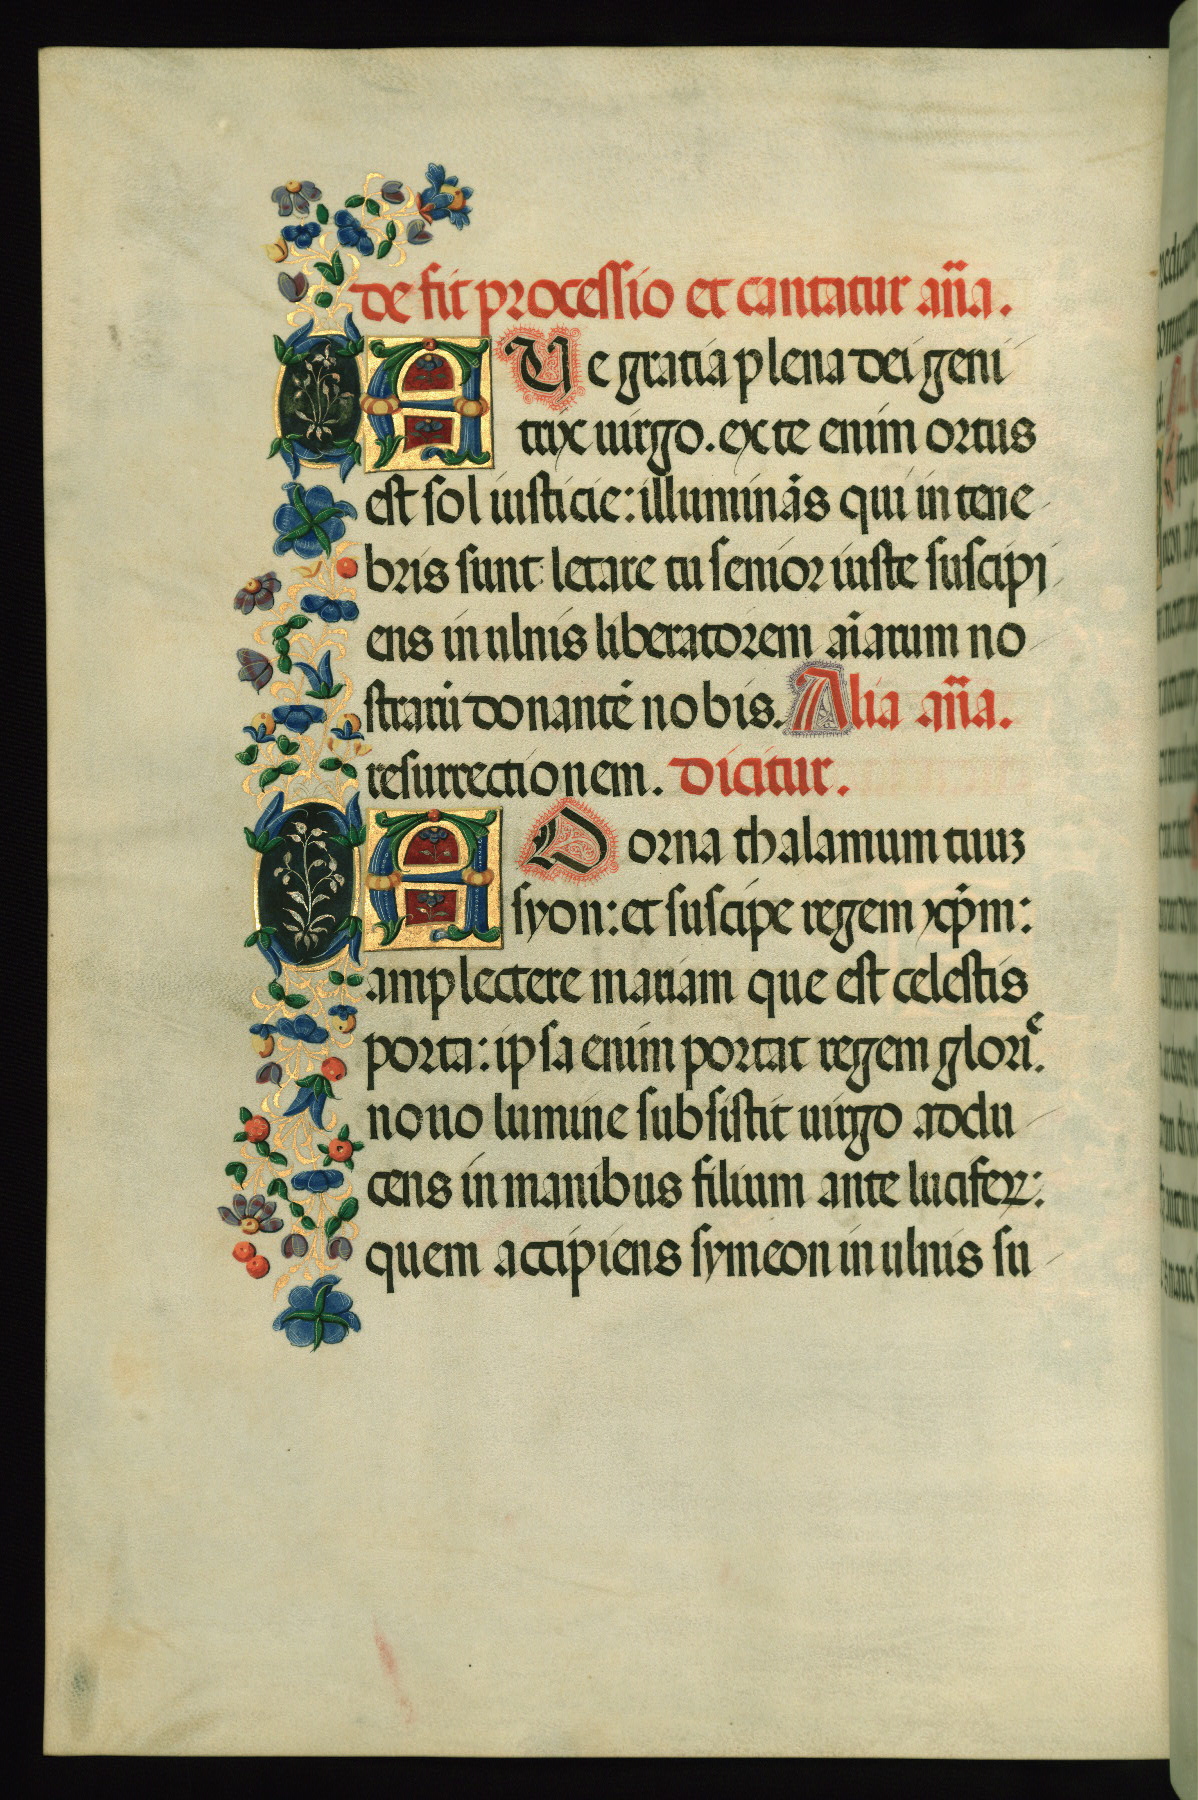 de fit processio et cantatur an̄a.
AVe gratia plena dei geni
trix uirgo. ex te enim ortus
est sol iusticie: illuminās qui in tene
bris sunt letare tu senior iuste suscipi
ens in ulnis liberatorem aīarum no
strarū donantē nobis. Alia an̄a.
resurrectionem. dicitur.
ADorna thalamum tuuꝫ
syon: et suscipe regem xp̄m:
amplectere mariam que est celestis
porta: ipsa enim portat regem glorіͤ.
nouo lumine subsistit uirgo addu
cens in manibus filium ante luciferꝫ:
quem accipiens symeon in ulnis su